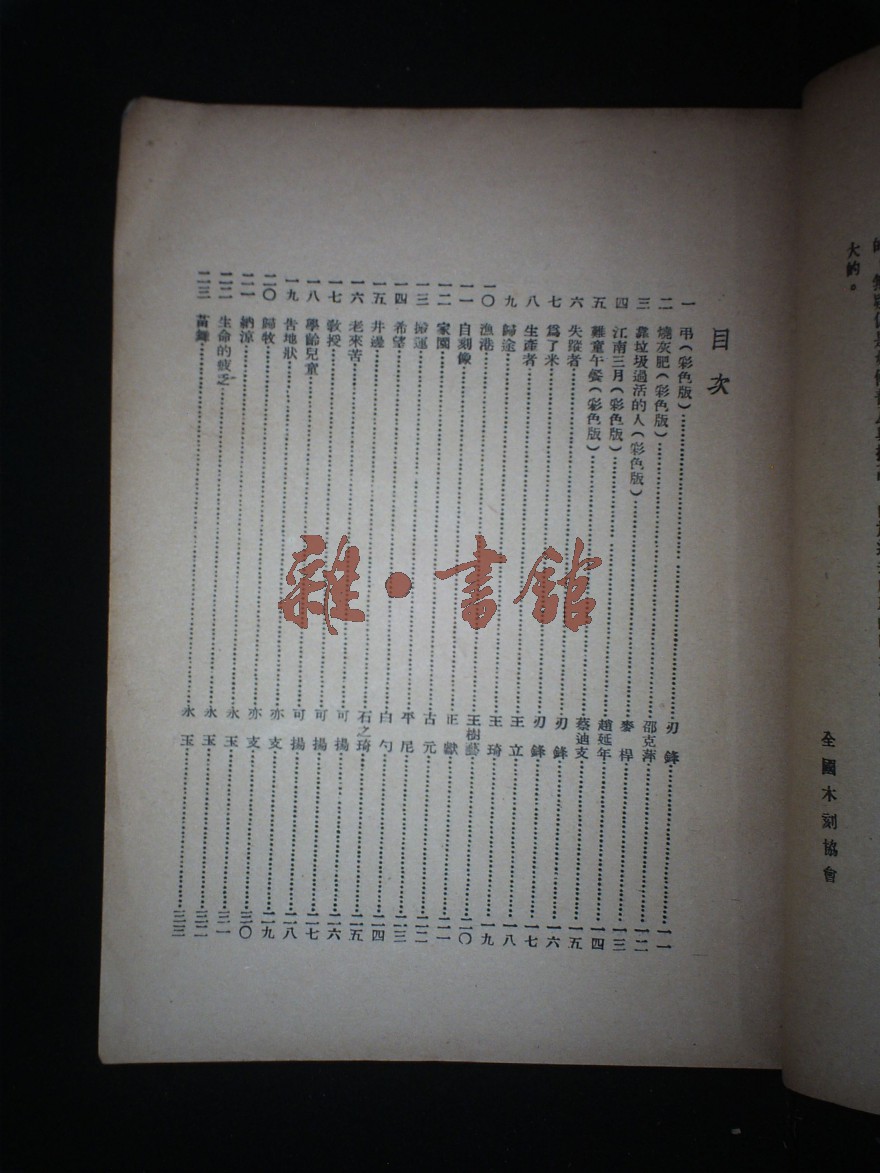 大的。
全國木刻協會
目次
一 弔(彩色版)……刃鋒……一一
二 燒灰肥(彩色版)……邵克萍……一二
三 靠垃圾過活的人(彩色版)……麥稈……一三
四 江南三月(彩色版)……趙延年……一四
五 難童午餐(彩色版)……蔡迪支……一五
六 失蹤者……刃鋒……一六
七 爲了米……刃鋒……一七
八 生產者……王立……一八
九 歸途……王琦……一九
一〇 漁港……王樹藝……二〇
一一 自刻像……正獻……二一
一二 家園……古元……二二
一三 搬運……平尼……二三
一四 希望……白勺……二四
一五 井邊……石之琦……二五
一六 老來苦……可揚……二六
一七 教授……可揚……二七
一八 學齡兒童……可揚……二八
一九 告地狀……亦支……二九
二〇 歸牧……亦支……三〇
二一 納涼……永玉……三一
二二 生命的疲乏……永玉……三二
二三 苗舞……永玉……三三
雜·書館